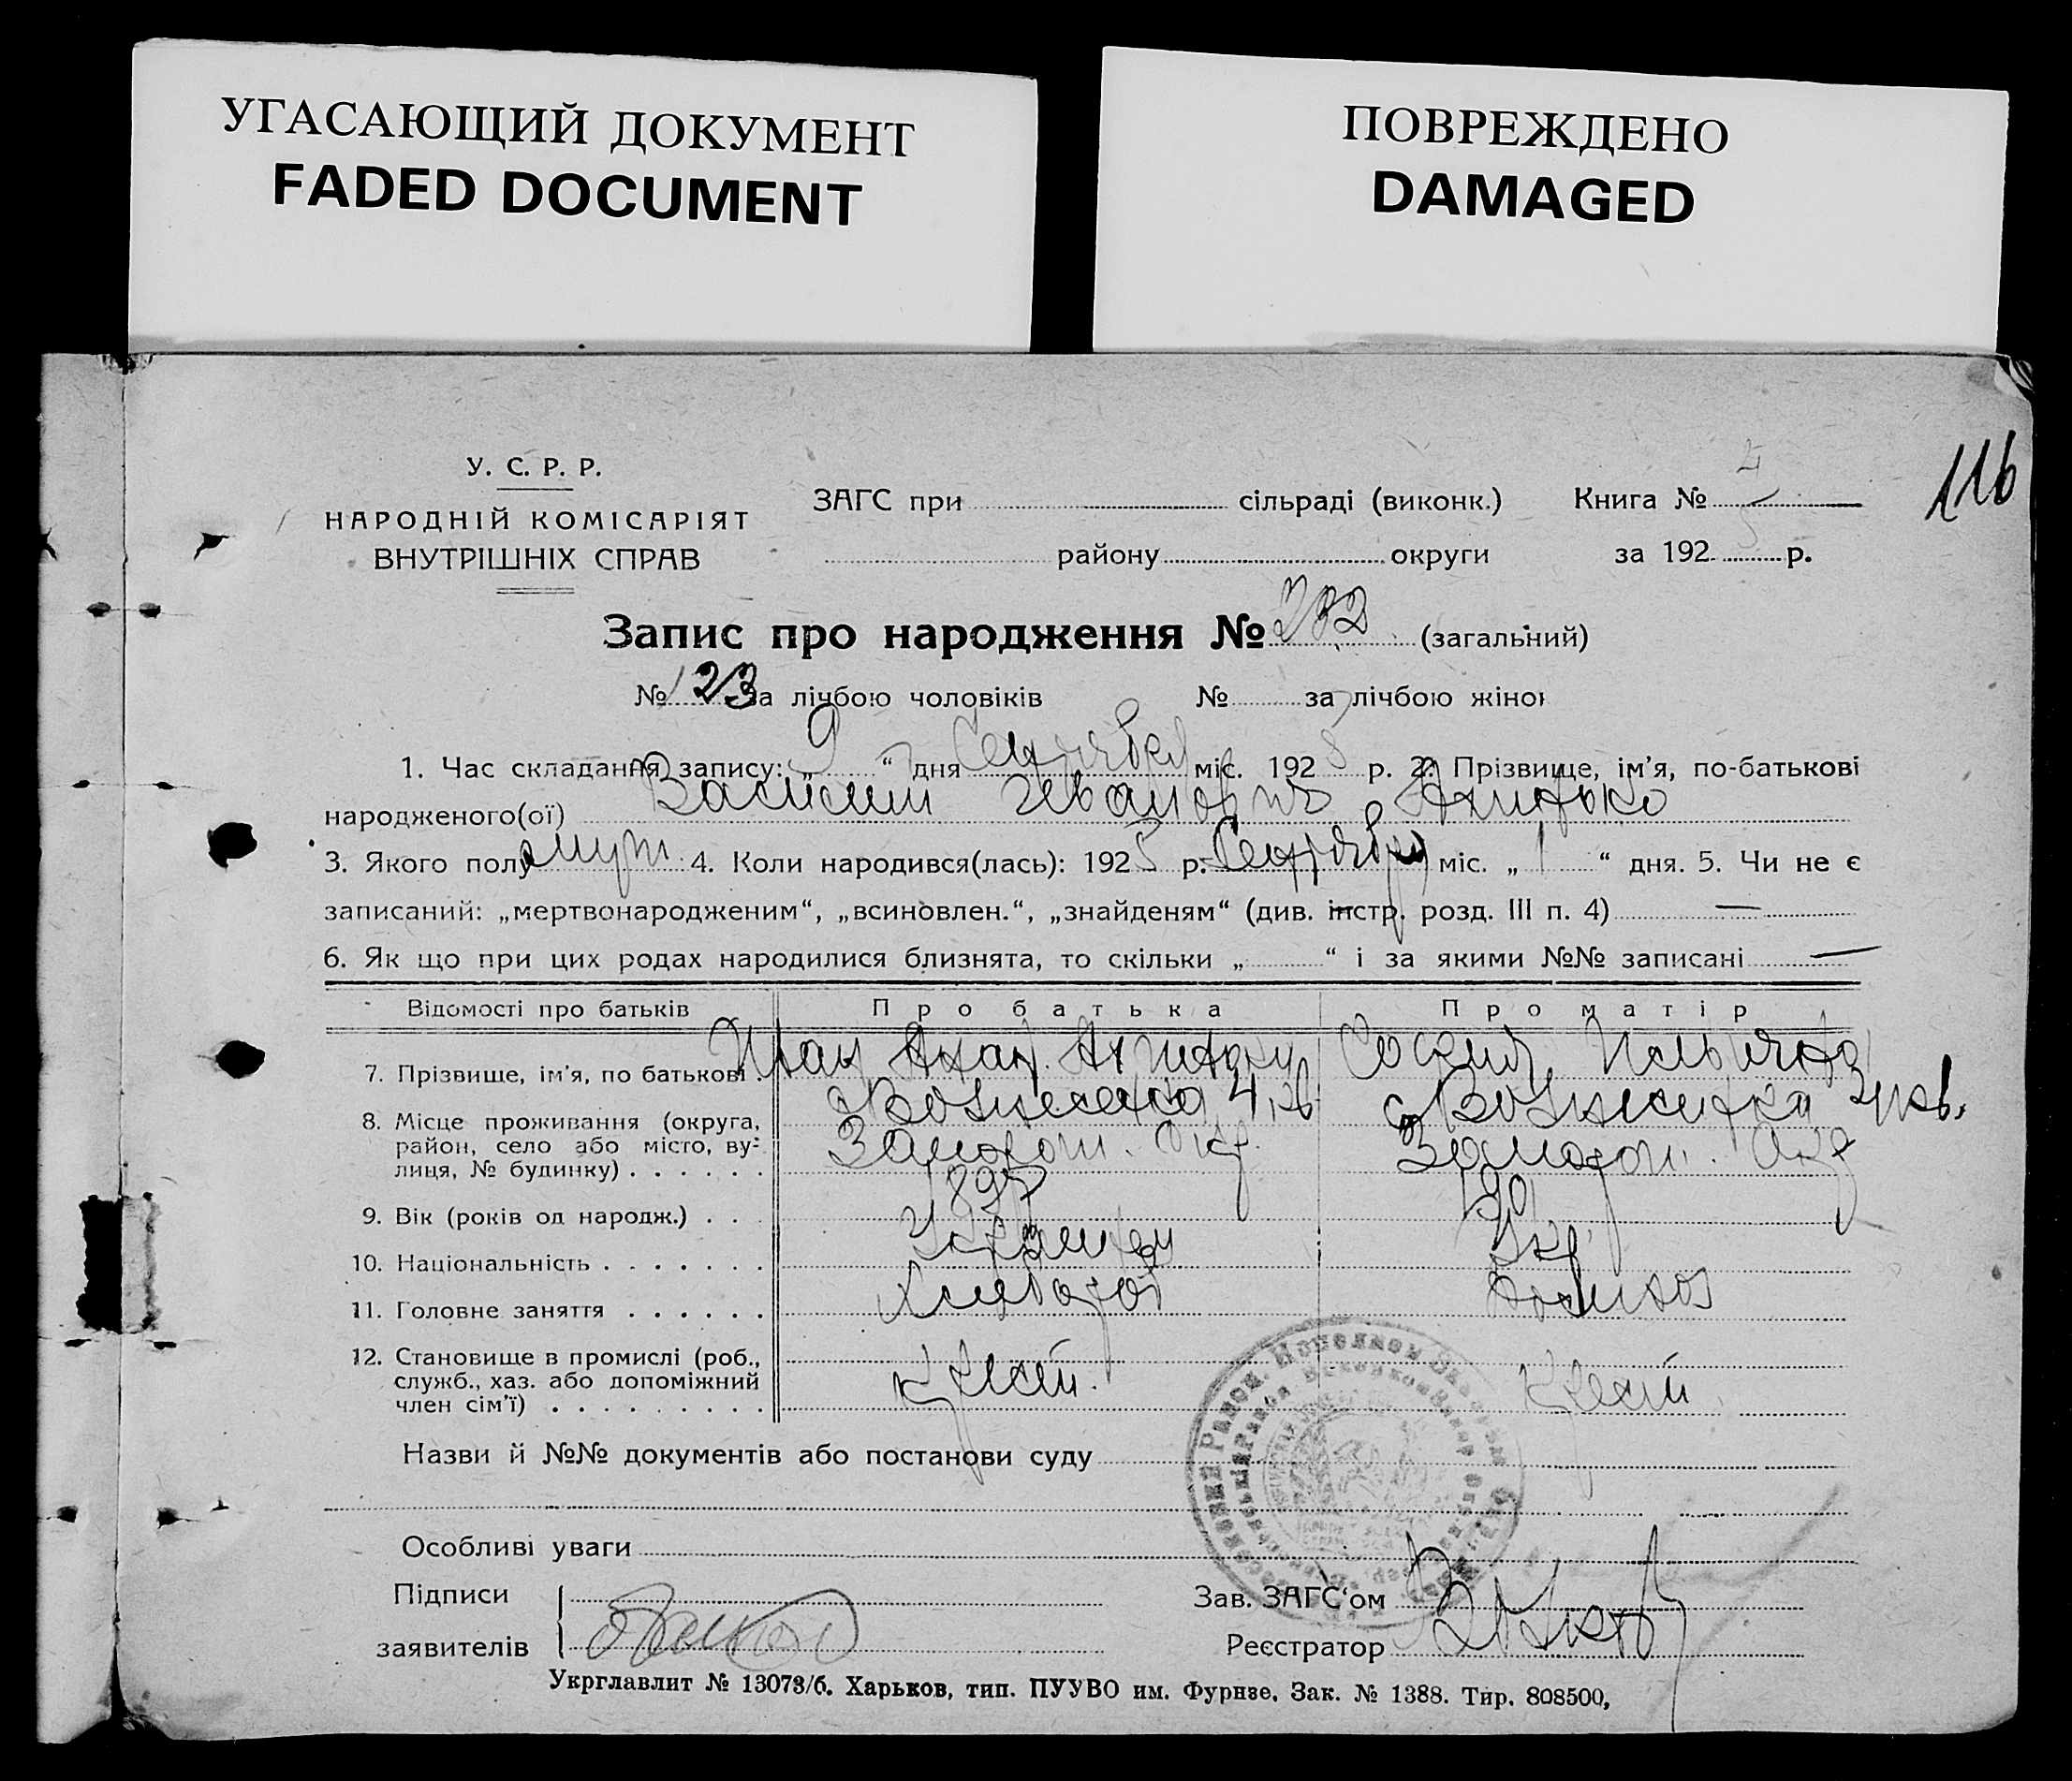 УГАСАЮЩИЙ ДОКУМЕНТ
FADED DOCUMENT
ПОВРЕЖДЕНО
DAMAGED
116
У. С. Р. Р.
НАРОДНІЙ КОМІСАРІЯТ
ВНУТРІШНІХ СПРАВ
ЗАГС при сільраді (виконк.) Книга №
району округи за 192 5 р.
Запис про народження № 232 (загальний)
№ 123 за лічбою чоловіків № за лічбою жінок
1. Час складання запису: „ 9 “ дня Сентября міс. 192 5 р. 2. Прізвище, ім'я, по-батькові
народженого(ої) Василий Иванович
3. Якого полу муж 4. Коли народився(лась): 192 5 р. Сентября міс. „ 1 “ дня. 5. Чи не є
записаний: „мертвонародженим“, „всиновлен.“, „знайденям“ (див. інстр. розд. III п. 4) —
6. Як що при цих родах народилися близнята, то скільки „ “ і за якими №№ записані —
Відомості про батьків Про батька Про матір
7. Прізвище, ім'я, по батькові . Иван
8. Місце проживання (округа, район, село або місто, вулиця, № будинку) . . . . . . с. Вознесенка 4 кв. Запорож. Окр. с. Вознесенка 4 кв. Запорож. Окр
9. Вік (років од народж.) . . . 1897 1901
10. Національність . . . . . . . Украинец Укр.
11. Головне заняття . . . . . . Хлебороб Домхоз
12. Становище в промислі (роб., служб., хаз. або допоміжний член сім'ї) . . . . . . . . . Крест. Крест
Назви й №№ документів або постанови суду
Особливі уваги
Підписи
заявителів
Зав. ЗАГС'ом
Реєстратор
Укрглавлит № 13073/б. Харьков, тип. ПУУВО им. Фрунзе. Зак. № 1388. Тир. 808500,